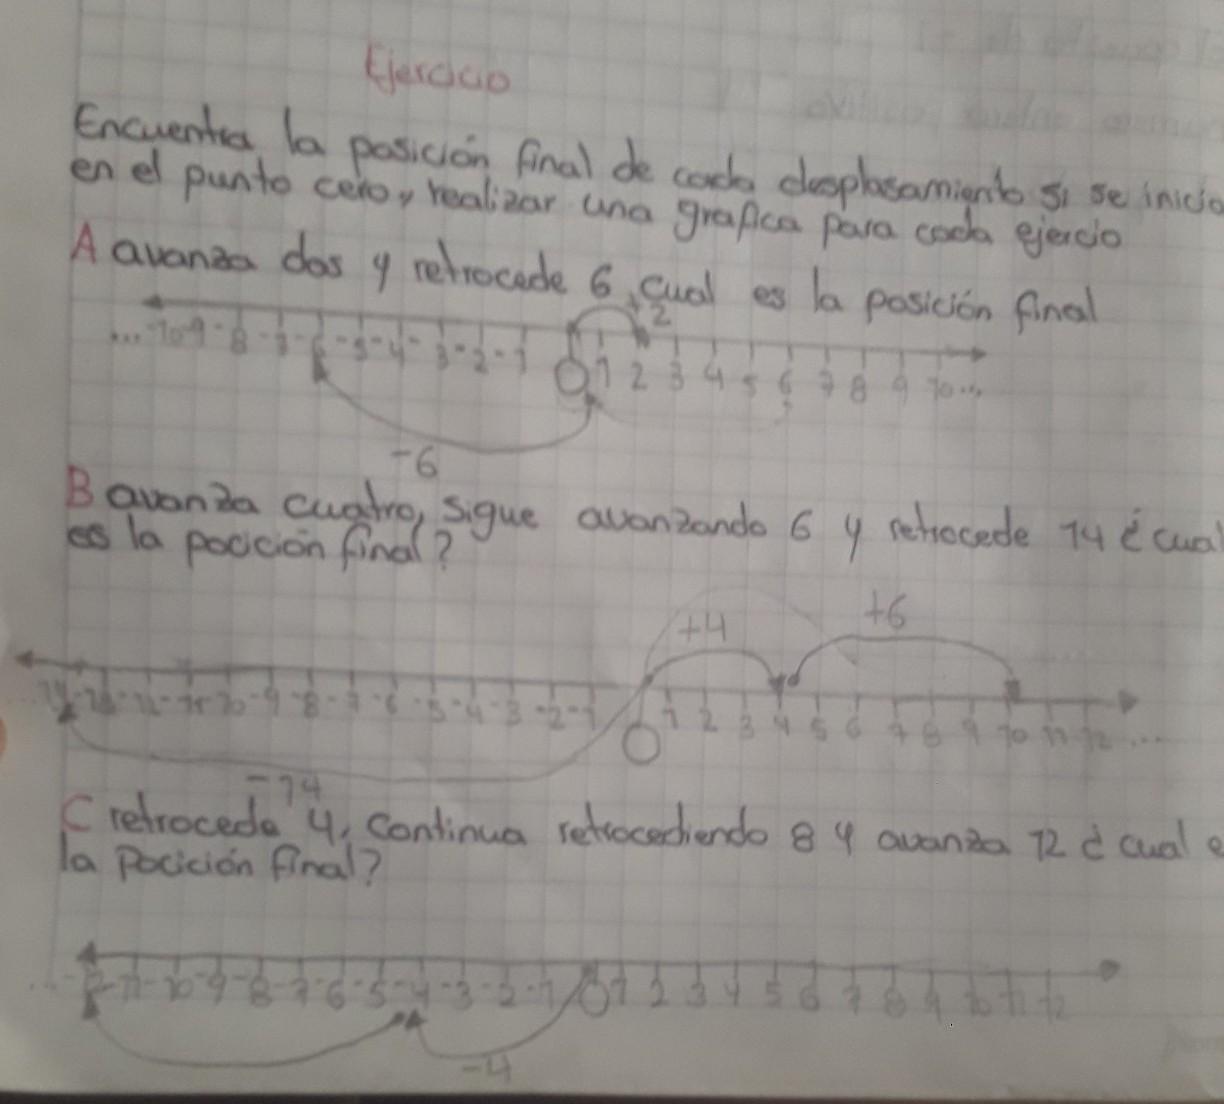 Ejercicio
Encuentra la posición final de cada desplasamiento si se inicia
en el punto cero, realizar una grafica para cada ejercio
A avanza dos y retrocede 6, cual es la posición final
+2
... -10 -9 -8 -7 -6 -5 -4 -3 -2 -1 0 1 2 3 4 5 6 7 8 9 10...
-6
B avanza cuatro, sigue avanzando 6 y retrocede 14 ¿cual
es la pocición final?
+4 +6
-14 -13 -12 -11 -10 -9 -8 -7 -6 -5 -4 -3 -2 -1 0 1 2 3 4 5 6 7 8 9 10 11 12 ...
-14
C retrocede 4, continua retrocediendo 8 y avanza 12 ¿cual e
la pocición final?
... -12 -11 -10 -9 -8 -7 -6 -5 -4 -3 -2 -1 0 1 2 3 4 5 6 7 8 9 10 11 12
-4